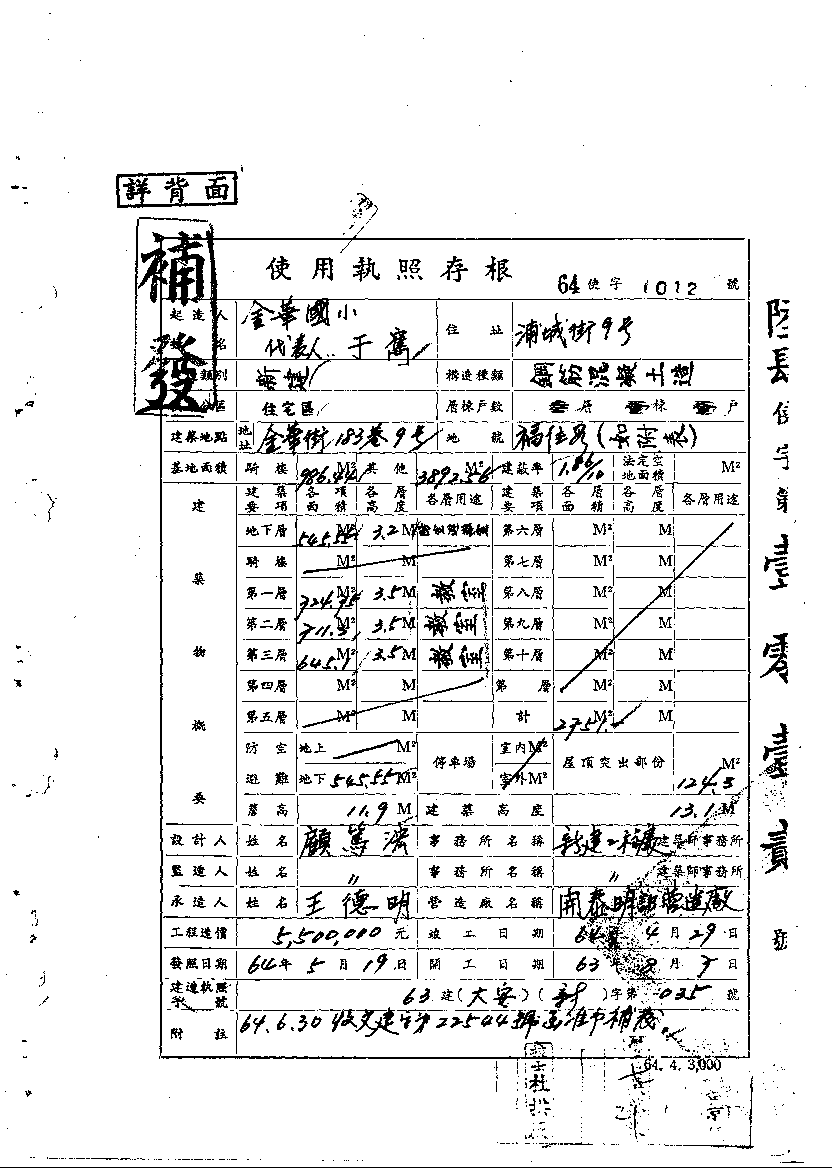 詳背面
補發
使用執照存根
64使字1012號
起造人 金華國小 代表人 于寯
住址 浦城街9号
類別 新建
構造種類 鋼筋混凝土造
區 住宅區
層棟戶數 層 棟 戶
建築地點 地址 金華街183巷9号
地號 福住段(如附表)
基地面積 騎樓 986.44M² 其他 3892.56M² 建蔽率 法定空地面積 M²
建築物概要
建築要項 各項面積 各層高度 各層用途 建築要項 各層面積 各層高度 各層用途
地下層 545.55M² 3.2M 第六層 M² M
騎樓 M² M 第七層 M² M
第一層 M² 3.5M 教室 第八層 M² M
第二層 M² 3.5M 教室 第九層 M² M
第三層 M² 3.5M 教室 第十層 M² M
第四層 M² M 第 層 M² M
第五層 M² M 計 M² M
防空避難 地上 M² 停車場 室內M² 屋頂突出部份 M²
地下 545.55M² 室外M² 124.3
簷高 11.9M 建築高度 13.1M
設計人 姓名 顧篤 事務所名稱 建築師事務所
監造人 姓名 〃 事務所名稱 〃 建築師事務所
承造人 姓名 王德明 營造廠名稱 開泰明記營造廠
工程造價 5,500,000元 竣工日期 64年4月29日
發照日期 64年5月19日 開工日期 63年 月 日
建造執照字號 63建(大安)( )字第035號
附註 64.6.30收文建字第22544號函准予補發。
64. 4. 3,000
陸長使字第壹零壹貳號